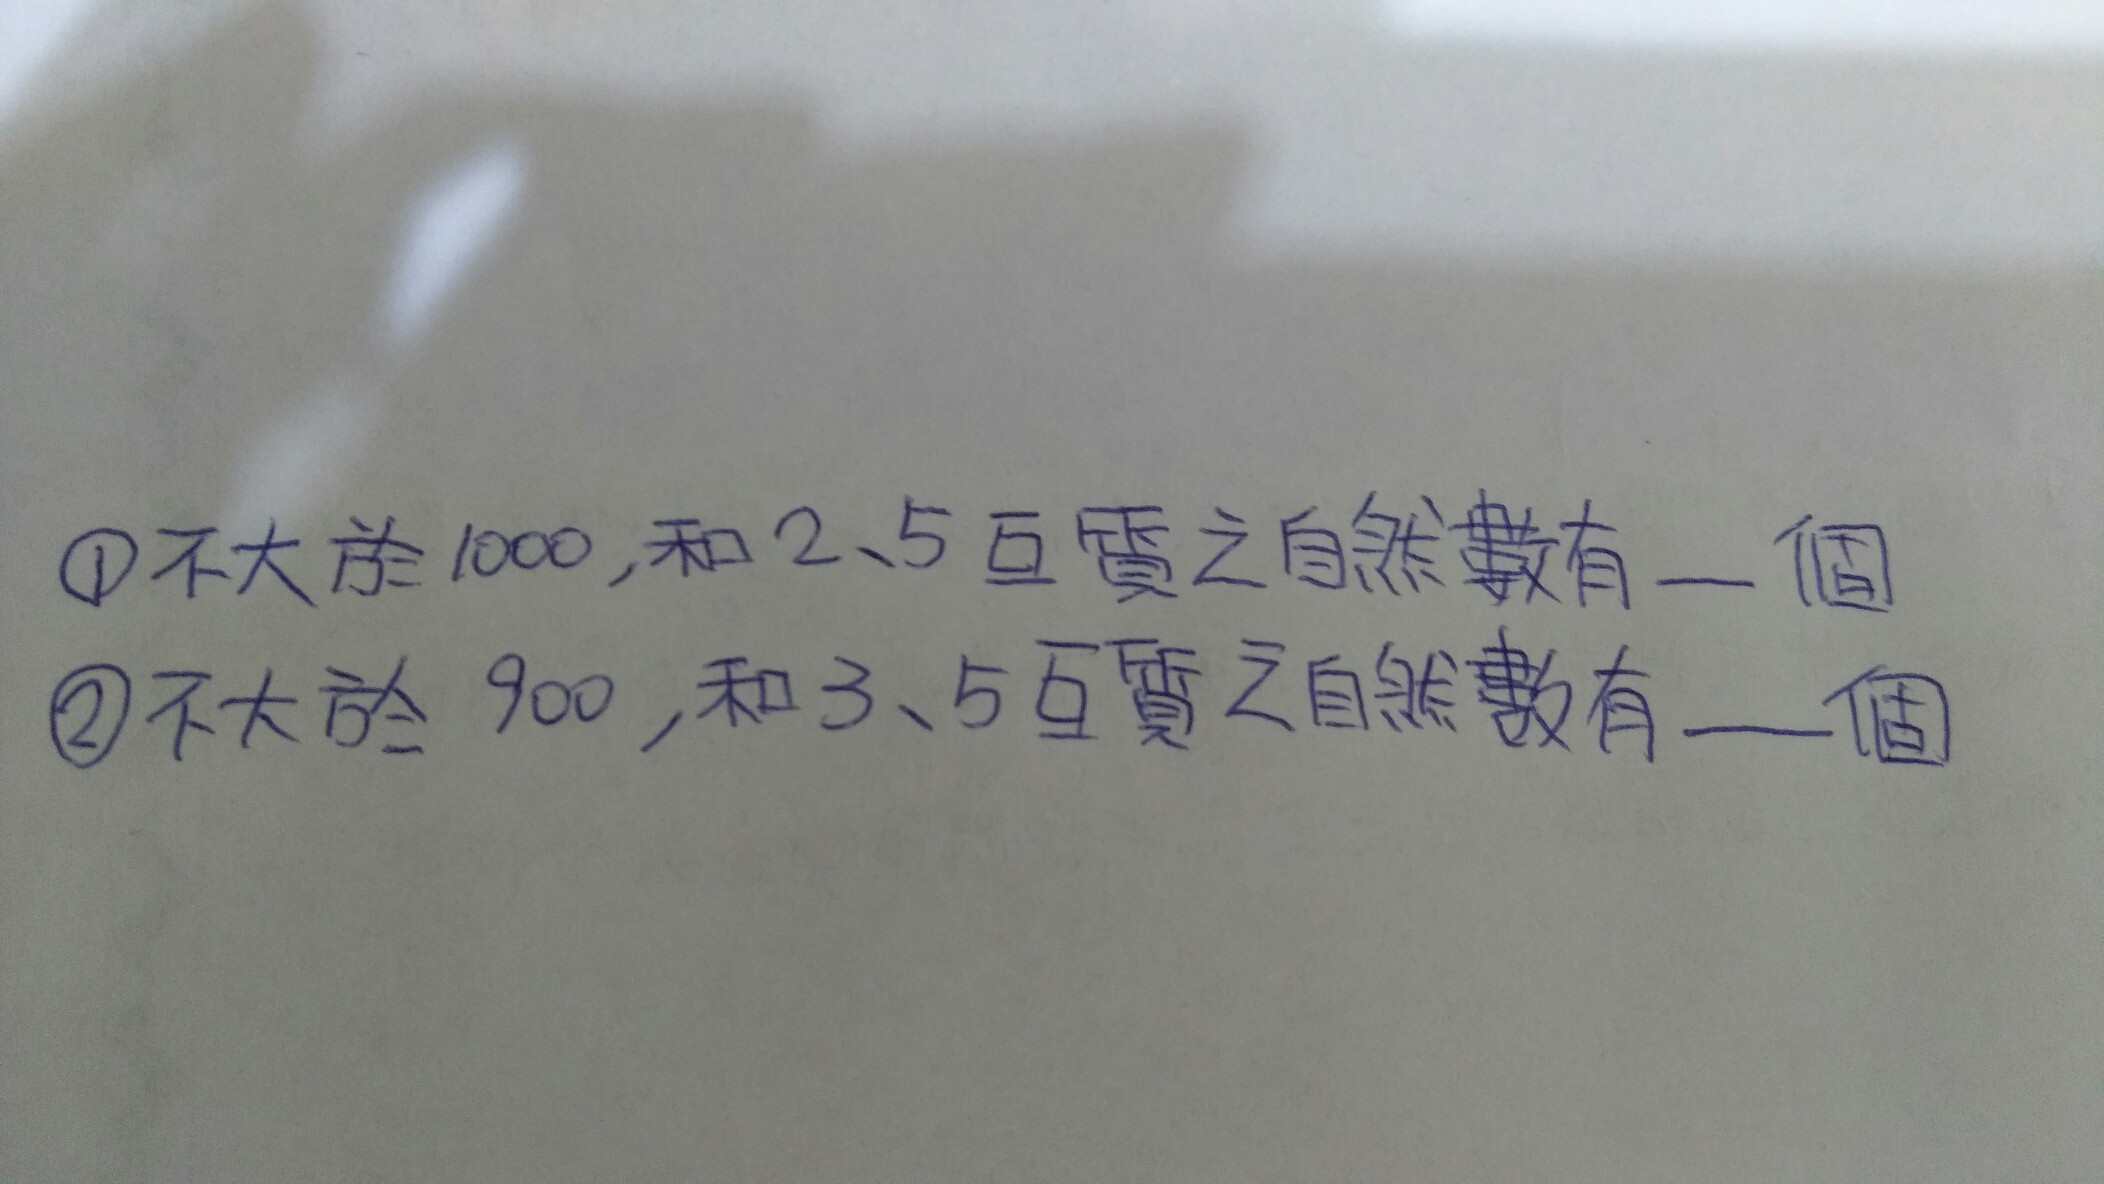 ①不大於1000,和2、5互質之自然數有__個
②不大於 900,和3、5互質之自然數有__個